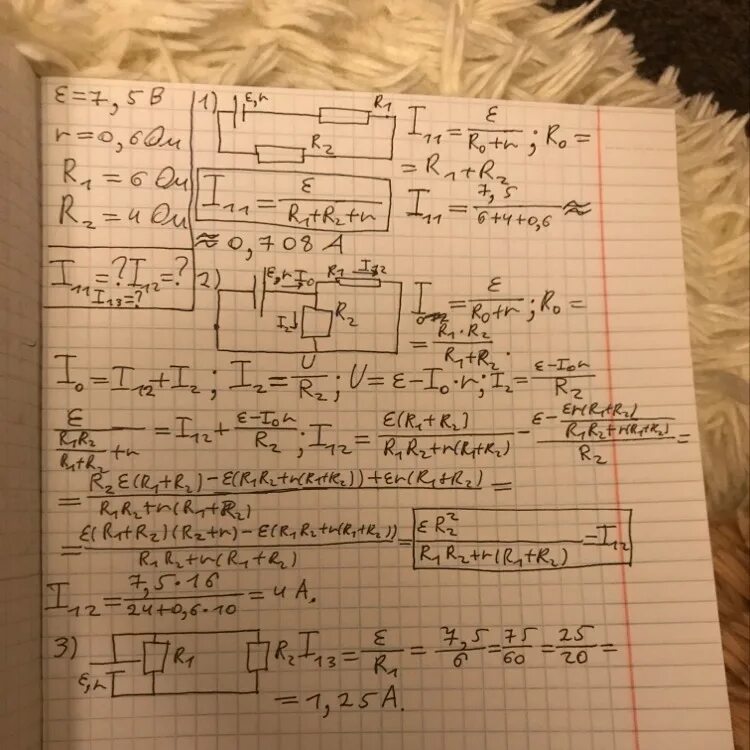 ε=7,5 В
r=0,6 Ом
R₁=6 Ом
R₂=4 Ом
I₁₁=? I₁₂=?
I₁₃=?
1) ε,r R₁ R₂
I₁₁=ε/(R₀+r); R₀=
=R₁+R₂
I₁₁=ε/(R₁+R₂+r)
I₁₁=7,5/(6+4+0,6)≈
≈0,708 А
2) ε,r I₀ R₁ I₁₂ I₂↓ R₂
I₀=ε/(R₀+r); R₀=
=R₁·R₂/(R₁+R₂).
I₀=I₁₂+I₂; I₂=U/R₂; U=ε-I₀·r; I₂=(ε-I₀r)/R₂
ε/(R₁R₂/(R₁+R₂)+r)=I₁₂+(ε-I₀r)/R₂; I₁₂=ε(R₁+R₂)/(R₁R₂+r(R₁+R₂))-(ε-εr(R₁+R₂)/(R₁R₂+r(R₁+R₂)))/R₂=
=(R₂ε(R₁+R₂)-ε(R₁R₂+r(R₁+R₂))+εr(R₁+R₂))/(R₁R₂+r(R₁+R₂))=
=(ε(R₁+R₂)(R₂+r)-ε(R₁R₂+r(R₁+R₂)))/(R₁R₂+r(R₁+R₂))=εR₂²/(R₁R₂+r(R₁+R₂))=I₁₂
I₁₂=7,5·16/(24+0,6·10)=4 А.
3) ε,r R₁ R₂ I₁₃=ε/R₁=7,5/6=75/60=25/20=
=1,25 А.